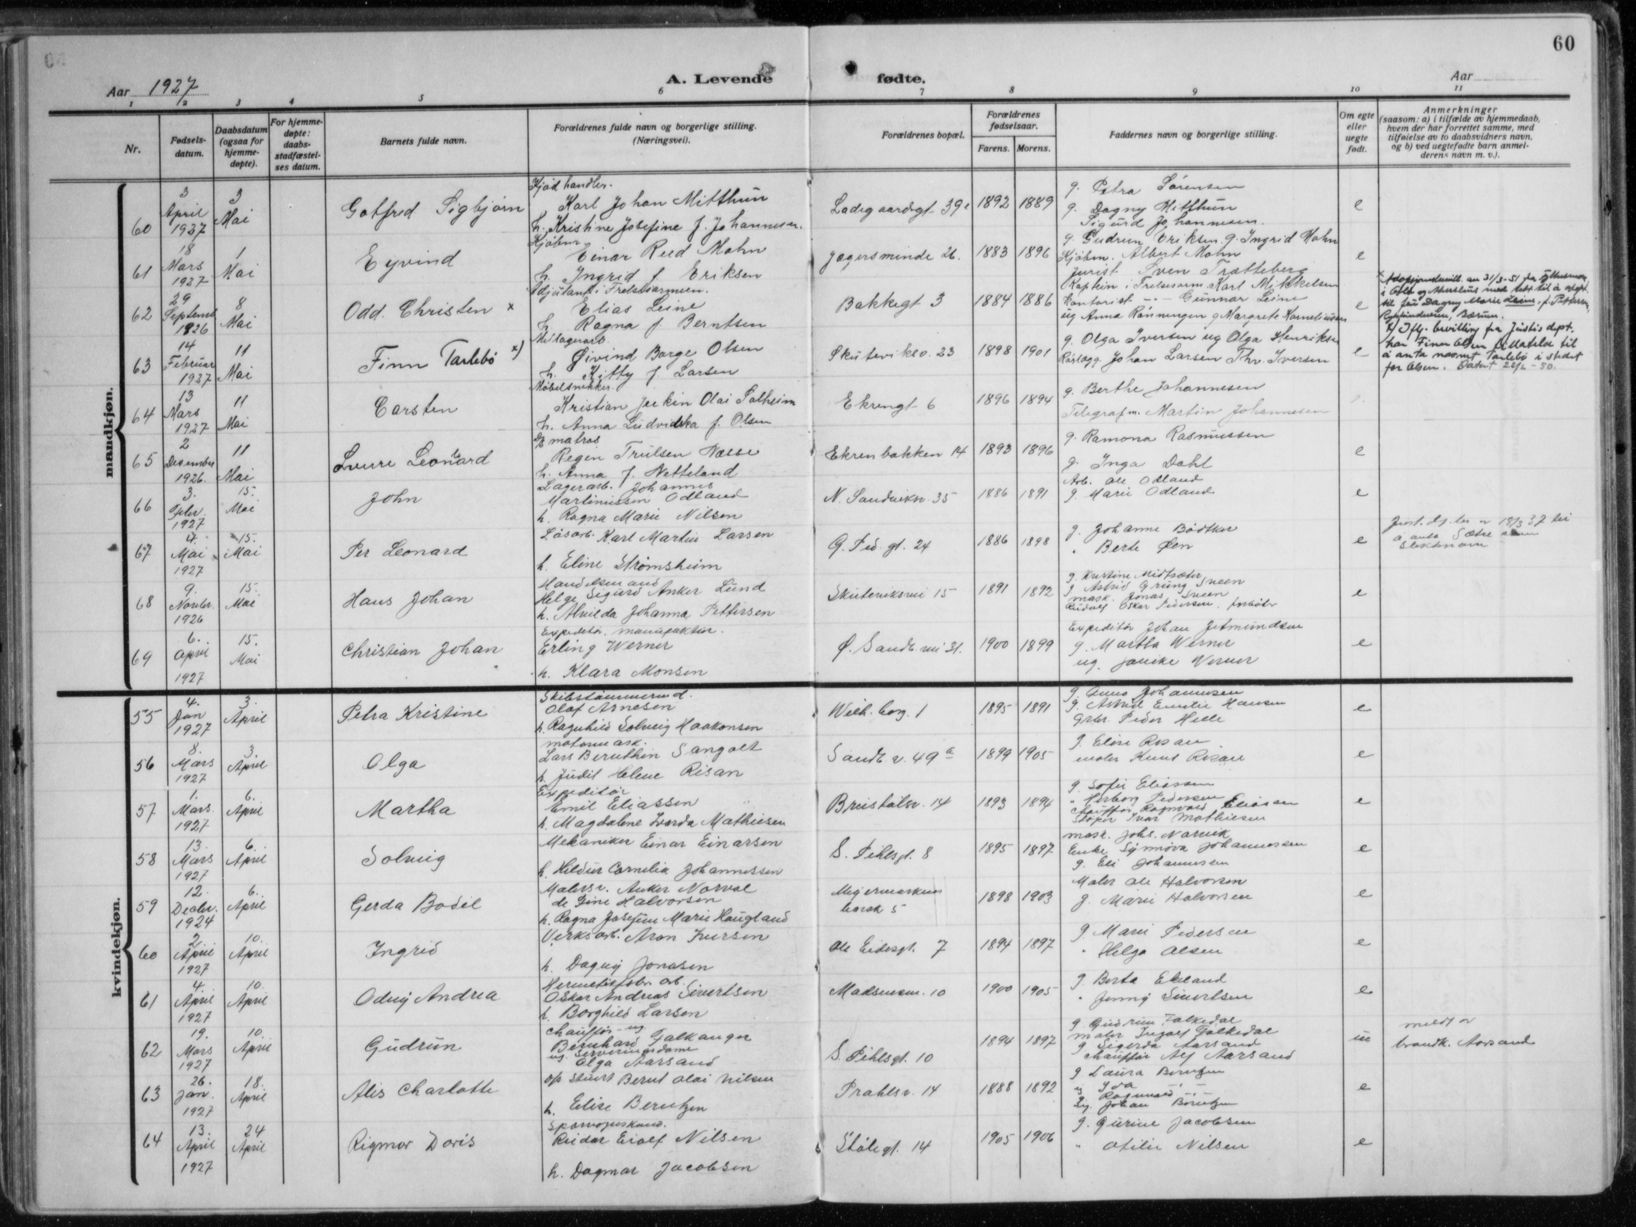 60
Aar 1927
A. Levende fødte.
Aar
1 2 3 4 5 6 7 8 9 10 11
Nr.
Fødsels-
datum.
Daabsdatum
(ogsaa for
hjemme-
døpte).
For hjemme-
døpte:
daabs-
stadfæstel-
ses datum.
Barnets fulde navn.
Forældrenes fulde navn og borgerlige stilling.
(Næringsvei).
Forældrenes bopæl.
Forældrenes
fødselsaar.
Farens. Morens.
Faddernes navn og borgerlige stilling.
Om egte
eller
uegte
født.
Anmerkninger
(saasom: a) i tilfælde av hjemmedaab,
hvem der har forrettet samme, med
tilføielse av to daabsvidners navn,
og b) ved uegtefødte barn anmel-
derens navn m. v.).
mandkjøn.
60
3 April 1927
3 Mai
Gotfred Sigbjørn
Kjødhandler.
Karl Johan Mitthun
h. Kristine Josefine f. Johannesen.
Ladegaardsgt. 39
1892 1889
g. Petra Sørensen
g. Dagny Mitthun
Sigurd Johannesen.
e
61
18 Mars 1927
1 Mai
Eyvind
Einar Reed Mohn
h. Ingrid f. Eriksen
Jægersminde 26.
1883 1896
g. Gudrun Eriksen. g. Ingrid Mohn
Kjøbm. Albert Mohn
Jurist Sven Trætteberg
e
62
29 Septemb 1926
8 Mai
Odd Christen x
Adjutant i Frelsesarmeen.
Elias Leine
h. Ragna f. Berntsen
Bakkegt 3
1884 1886
Kaptein i Frelsesarm Karl Mikkelsen
Kontorist Gunnar Leine
ug Anna Rønningen g Margrete Korneliussen
e
63
14 Februar 1927
11 Mai
Finn Tarlebø x)
Øivind Borge Olsen
h. Kitty f. Larsen
Skuteviksv. 23
1898 1901
g. Olga Iversen ug Olga Henriksen
Johan Larsen Thv. Iversen
e
x) Iflg. bevilling fra Justis dept.
har Finn Olsen tillatelse til
å anta navnet Tarlebø i stedet
for Olsen.
64
13 Mars 1927
11 Mai
Carsten
Møbelsnekker
Kristian Joekin Olai Solheim
h. Anna Ludvidska f. Olsen
Ekrengt 6
1896 1894
g. Berthe Johannesen
Telegrafm. Martin Johannesen
65
2 Desember 1926.
11 Mai
Sverre Leonard
matros
Regen Trulsen Næsse
h. Anna f. Netteland
Ekrenbakken 14
1893 1896
g. Ramona Rasmussen
g. Inga Dahl
e
66
3. 1927
15. Mai
John
Lagerarb. Johannes
Martinussen Odland
h. Ragna Marie Nilsen
N. Sandviksv. 35
1886 1891
Arb. Ole Odland
g Marie Odland
e
67
4. Mai 1927
15. Mai
Per Leonard
Løsarb. Karl Martin Larsen
h. Eline Strømsheim
G. Ped. gt. 24
1886 1898
g. Johanne Bødtker
" Berte Øen
e
68
9. Novbr. 1926
15. Mai
Hans Johan
Handelsmand
Helge Sigurd Anker Lund
h. Alvilda Johanna Pettersen
Skuteviksvei 15
1891 1892
g. Kristine Midtsæter
g. Astrid Grung Sveen
mask. Jonas Sveen
Rudolf Oskar Pedersen.
e
69
6. April 1927
15. Mai
Christian Johan
Expeditør, manufaktur.
Erling Werner
h. Klara Monsen
Ø. Sandv. vei 31.
1900 1899
Expeditør Johan Jetmundsen
g. Martha Werner
ug. Janike Werner
e
kvindekjøn.
55
4. Jan 1927
3. April
Petra Kristine
Skibstømmermd.
Olaf Arnesen
h. Ragnhild Solveig Haakonsen
Welh. borg. 1
1895 1891
g. Anna Johannesen
g. Astrid Emilie Hansen
Peder Helle
e
56
8. Mars 1927
3. April
Olga
motormask.
Lars Bernthin Sangolt
h. Judit Helene Risan
Sandv. v. 49 a
1899 1905
g. Elise Risan
maler Knut Risan
e
57
1. Mars 1927
6. April
Martha
Expeditør
Emil Eliassen
h. Magdalene Iverda Mathiesen
Breistølsv. 14
1893 1894
g. Sofie Eliassen
" Herborg Pedersen
Chauffør Ragnvald Eliassen
Støper Ivar Mathiesen
e
58
13. Mars 1927
6. April
Solveig
Mekaniker Einar Einarsen
h. Hildur Cornelia Johannessen
S. Pihlsgt. 8
1895 1897
mask. Johs. Narvik
Enke Synnøva Johannessen
g. Eli Johannessen
e
59
12. Decbr. 1924
6. April
Gerda Bodil
Malersv. Anker Norval
de Fine Halvorsen
h. Ragna Josefine Marie Haugland
1898 1903
Maler Ole Halvorsen
g. Marie Halvorsen
e
60
2. April 1927
10. April
Ingrid
Verksarb. Aron Iversen
h. Dagny Jonasen
Ole Eidesgt. 7
1894 1897
g Marie Pedersen
" Helga Olsen
e
61
4. April 1927
10. April
Odny Andrea
Hermetikfabr. arb.
Oskar Andreas Sivertsen
h. Borghild Larsen
Madamsm. 10
1900 1905
g. Berta Ekeland
" Jenny Sivertsen
e
62
19. Mars 1927
10. April
Gudrun
Chauffør ug
Bernhard Falkanger
ug. Serveringsdame
Olga Aarsand
S. Pihlsgt. 10
1894 1897
g Gudrun Falkedal
maler Ingolf Falkedal
g Sigerda Aarsand
chauffør Alf Aarsand
ue
meldt v
brandk. Aarsand
63
26. Jan. 1927
18. April
Alis Charlotte
Bernt Olai Nilsen
h. Elise Berntzen
Prahlsv. 14
1888 1892
g Laura Berntzen
" Iva
" Ragnvald
Johan Berntzen
e
64
13. April 1927
24 April
Rigmor Doris
Sporvognskond.
Reidar Eiolf Nilsen
h. Dagmar Jacobsen
Stølegt. 14
1905 1906
g. Gurine Jacobsen
" Otilie Nilsen
e